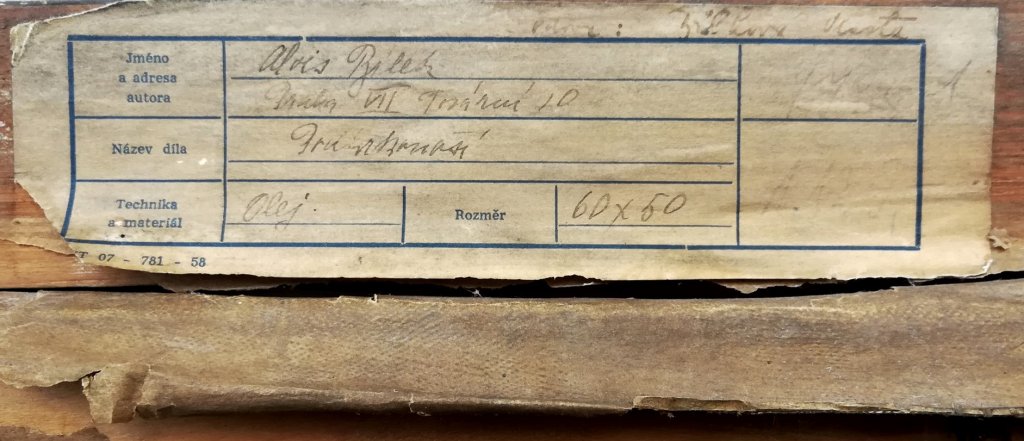 Jméno
a adresa
autora
Alois Bílek
Praha VII Tovární 10
Název díla
Technika
a materiál
Olej.
Rozměr
60 x 50
T 07 - 781 - 58